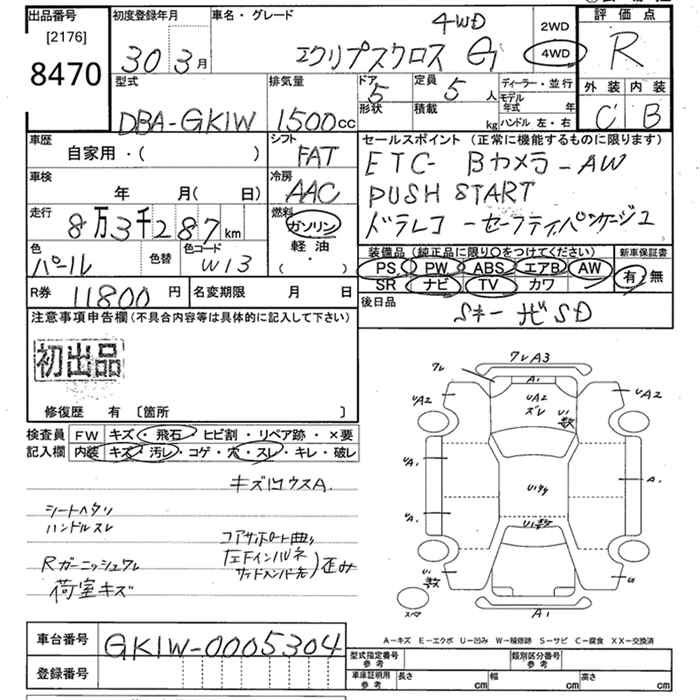 出品番号 初度登録年月 車名・グレード 4WD 2WD 評価点
[2176]
8470 30 3月 エクリプスクロス G 4WD R
型式 排気量 ドア 定員 ディーラー・並行 外装 内装
5 5人 モデル年式 年
DBA-GK1W 1500cc 形状 積載 kg ハンドル 左・右 C B
車歴 シフト セールスポイント (正常に機能するものに限ります)
自家用・( ) FAT ETC- Bカメラ-AW
車検 冷房 PUSH START
年 月( 日) AAC ドラレコ-セーフティパッケージ
走行 8万3千287km 燃料 ガソリン
軽油
( ・ )
色 色替 色コード 装備品(純正品に限り○をつけてください) 新車保証書
パール W13 PS PW ABS エアB AW 有 無
SR ナビ TV カワ
R券 11800円 名変期限 月 日 後日品
Sキー ナビSD
注意事項申告欄(不具合内容等は具体的に記入して下さい)
初出品
修復歴 有 〔箇所 〕
検査員 FW キズ・飛石・ヒビ割・リペア跡・×要
記入欄 内装 キズ・汚レ・コゲ・穴・スレ・キレ・破レ
シートヘタリ
ハンドルスレ
Rガーニッシュワレ
荷室キズ
コアサポート曲り
歪み
ワレ ワレA3
A1
UA2 UA2 UA2
ズレ
UA. A.
UA.
U
スペア A1
A-キズ E-エクボ U-凹み W-補修跡 S-サビ C-腐食 XX-交換済
車台番号 GK1W-0005304
登録番号
型式指定番号 参考 類別区分番号 参考
車庫証明用 参考 長さ cm 幅 cm 高さ cm